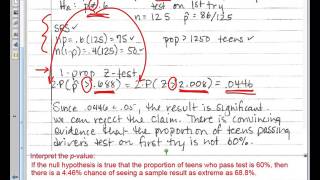 Ha: p≠.6
test on
1st try
n=125 p̂=86/125
SRS
np=.6(125)=75✓
n(1-p)=.4(125)=50✓
pop>1250 teens
1-prop Z-test
2·P(p̂>.688)=2·P(Z>2.008)=.0446
Since .0446<.05, the result is significant.
We can reject the claim. There is convincing
evidence that the proportion of teens passing
drivers test on first try is not 60%.
Interpret the p-value:
If the null hypothesis is true that the proportion of teens who pass test is 60%, then
there is a 4.46% chance of seeing a sample result as extreme as 68.8%.